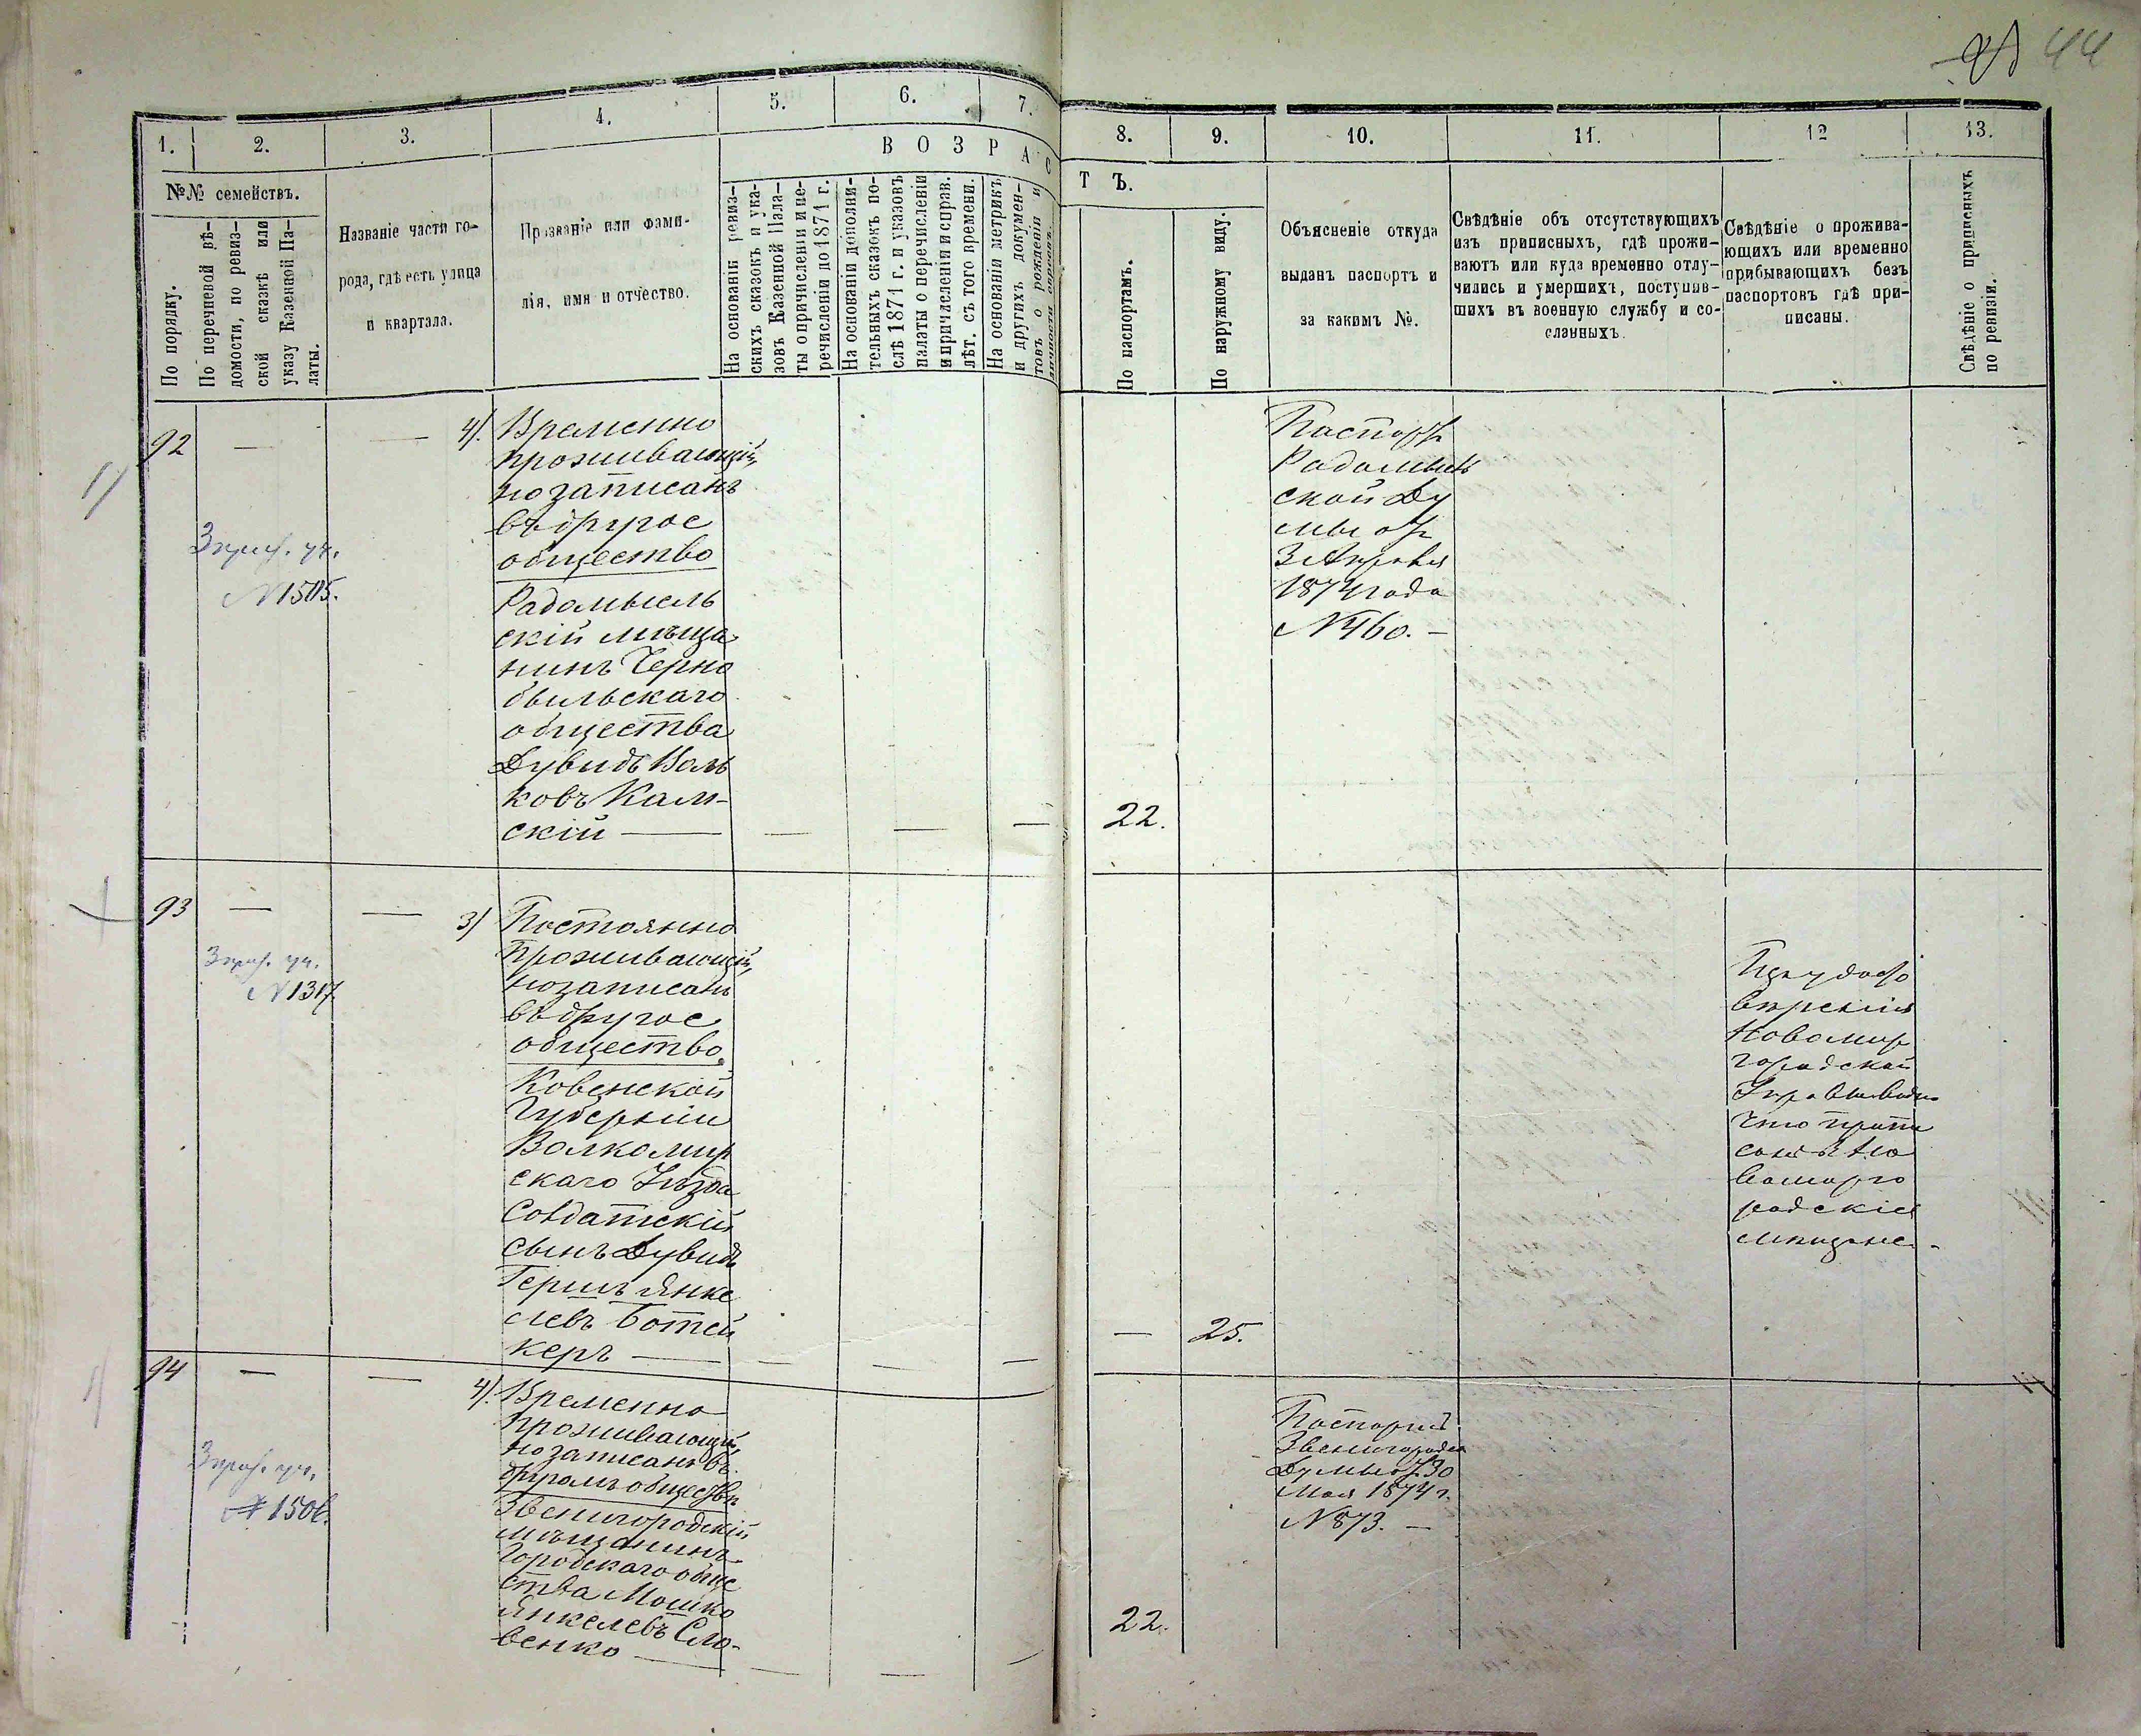 44
1.
2.
3.
4.
5.
6.
7.
8.
9.
10.
11.
12
13.
№№ семействъ.
По порядку.
По перечневой вѣ-
домости, по ревиз-
ской сказкѣ или
указу Казенной Па-
латы.
Названіе части го-
рода, гдѣ есть улица
и квартала.
Прозваніе или фами-
лія, имя и отчество.
ВОЗРАС
ТЪ.
На основаніи ревиз-
скихъ сказокъ и ука-
зовъ Казенной Пала-
ты о причисленіи и пе-
речисленіи до 1871 г.
На основаніи дополни-
тельныхъ сказокъ по-
слѣ 1871 г. и указовъ
палаты о перечисленіи
и причисленіи и справ.
лѣт. съ того времени.
На основаніи метрикъ
и другихъ докумен-
товъ о рожденіи и
По паспортамъ.
По наружному виду.
Объясненіе откуда
выданъ паспортъ и
за какимъ №.
Свѣдѣніе объ отсутствующихъ
изъ приписныхъ, гдѣ прожи-
ваютъ или куда временно отлу-
чились и умершихъ, поступив-
шихъ въ военную службу и со-
сланныхъ.
Свѣдѣніе о прожива-
ющихъ или временно
прибывающихъ безъ
паспортовъ гдѣ при-
писаны.
Свѣдѣніе о приписныхъ
по ревизіи.
92
—
—
4).
Временно
проживающій,
но записанъ
въ другое
общество
№ 1505.
Радомысль
скій мѣща
нинъ Черно
быльскаго
общества
Дувидъ Воль
ковъ Кам-
скій —
22.
Паспортъ
Радомысль
ской Ду
мы отъ
3 Апрѣля
1874 года
№ 460. —
93
—
—
3)
Постоянно
проживающій,
но записанъ
въ другое
общество.
№ 1317
Ковенской
Губерніи
Волкомир
скаго Уѣзда
Солдатскій
сынъ Дувидъ
Гершъ Янке
левъ Ботей
керъ —
—
25.
Изъ удосто
вѣренія
Новомир
городской
Управы видно
что припи
санъ въ Но
вомирго
родскіе
мѣщане. -
94
—
—
4).
Временно
проживающій,
но записанъ въ
другомъ обществѣ
№ 1506.
Звенигородскій
мѣщанинъ
Городскаго обще
ства Мошко
Янкелевъ Сло-
венко —
22.
Паспортъ
Звенигородск
Думы отъ 30
Мая 1874 г.
№ 873. —